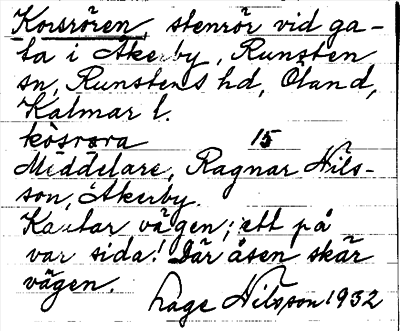 Korsrören, stenrör vid ga-
ta i Åkerby, Runsten
sn, Runstens hd, Öland,
Kalmar l.
15
Meddelare, Ragnar Nils-
son, Åkerby.
Kantar vägen; ett på
var sida! Där åsen skär
vägen.
Lage Nilsson 1932